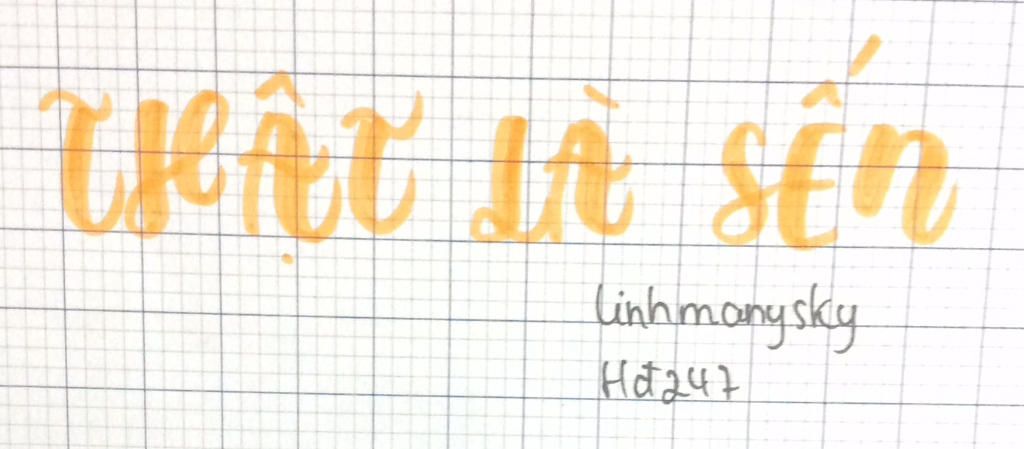 THẬT LÀ SẾN
linhmanysky
Hđ247